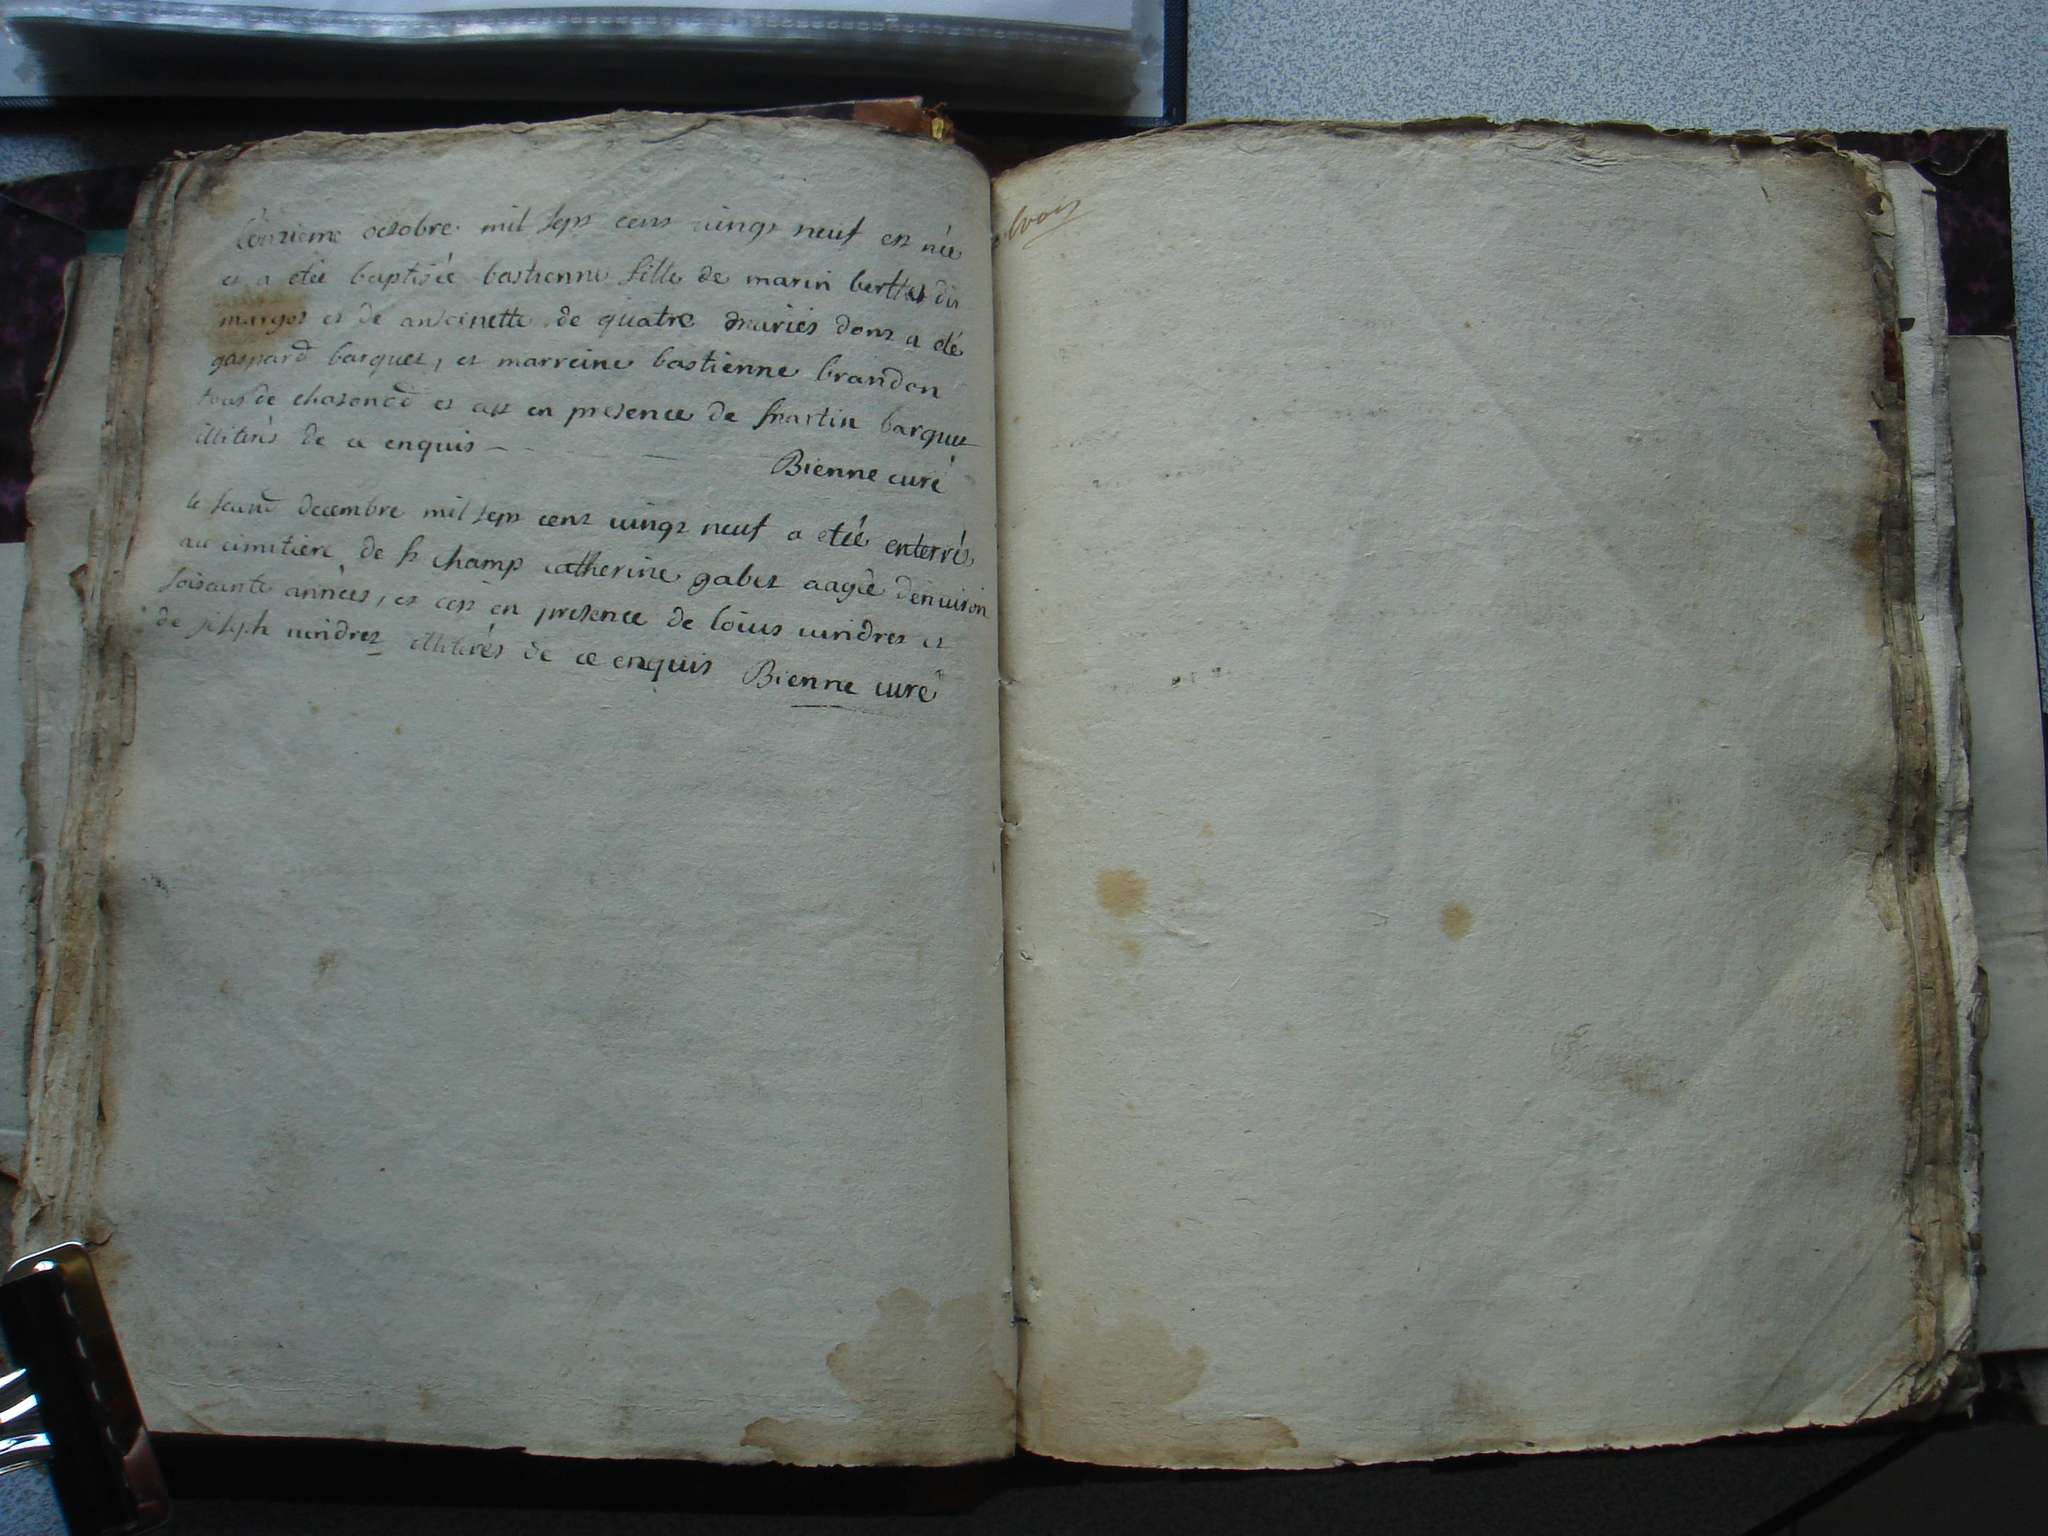 L'onzieme octobre mil sept cent vingt neuf est née
et a etée baptisée bastienne fille de marin berthet dit
margot et de antoinette de quatre mariés dont a eté
gaspard barquet, et marreine bastienne brandon
tous de chasonod et cest en presence de martin barquet
illiterés de ce enquis
Bienne curé
le second decembre mil sept cent vingt neuf a etée enterrée
au cimitiere de st champ catherine gabet aagée denviron
soisante années, et cest en presence de loüis et
de joseph illiterés de ce enquis Bienne curé